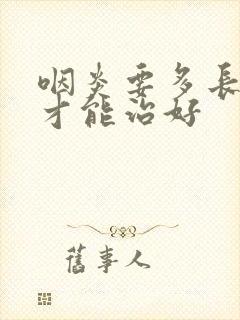 咽炎要多長
才能治好
舊事人